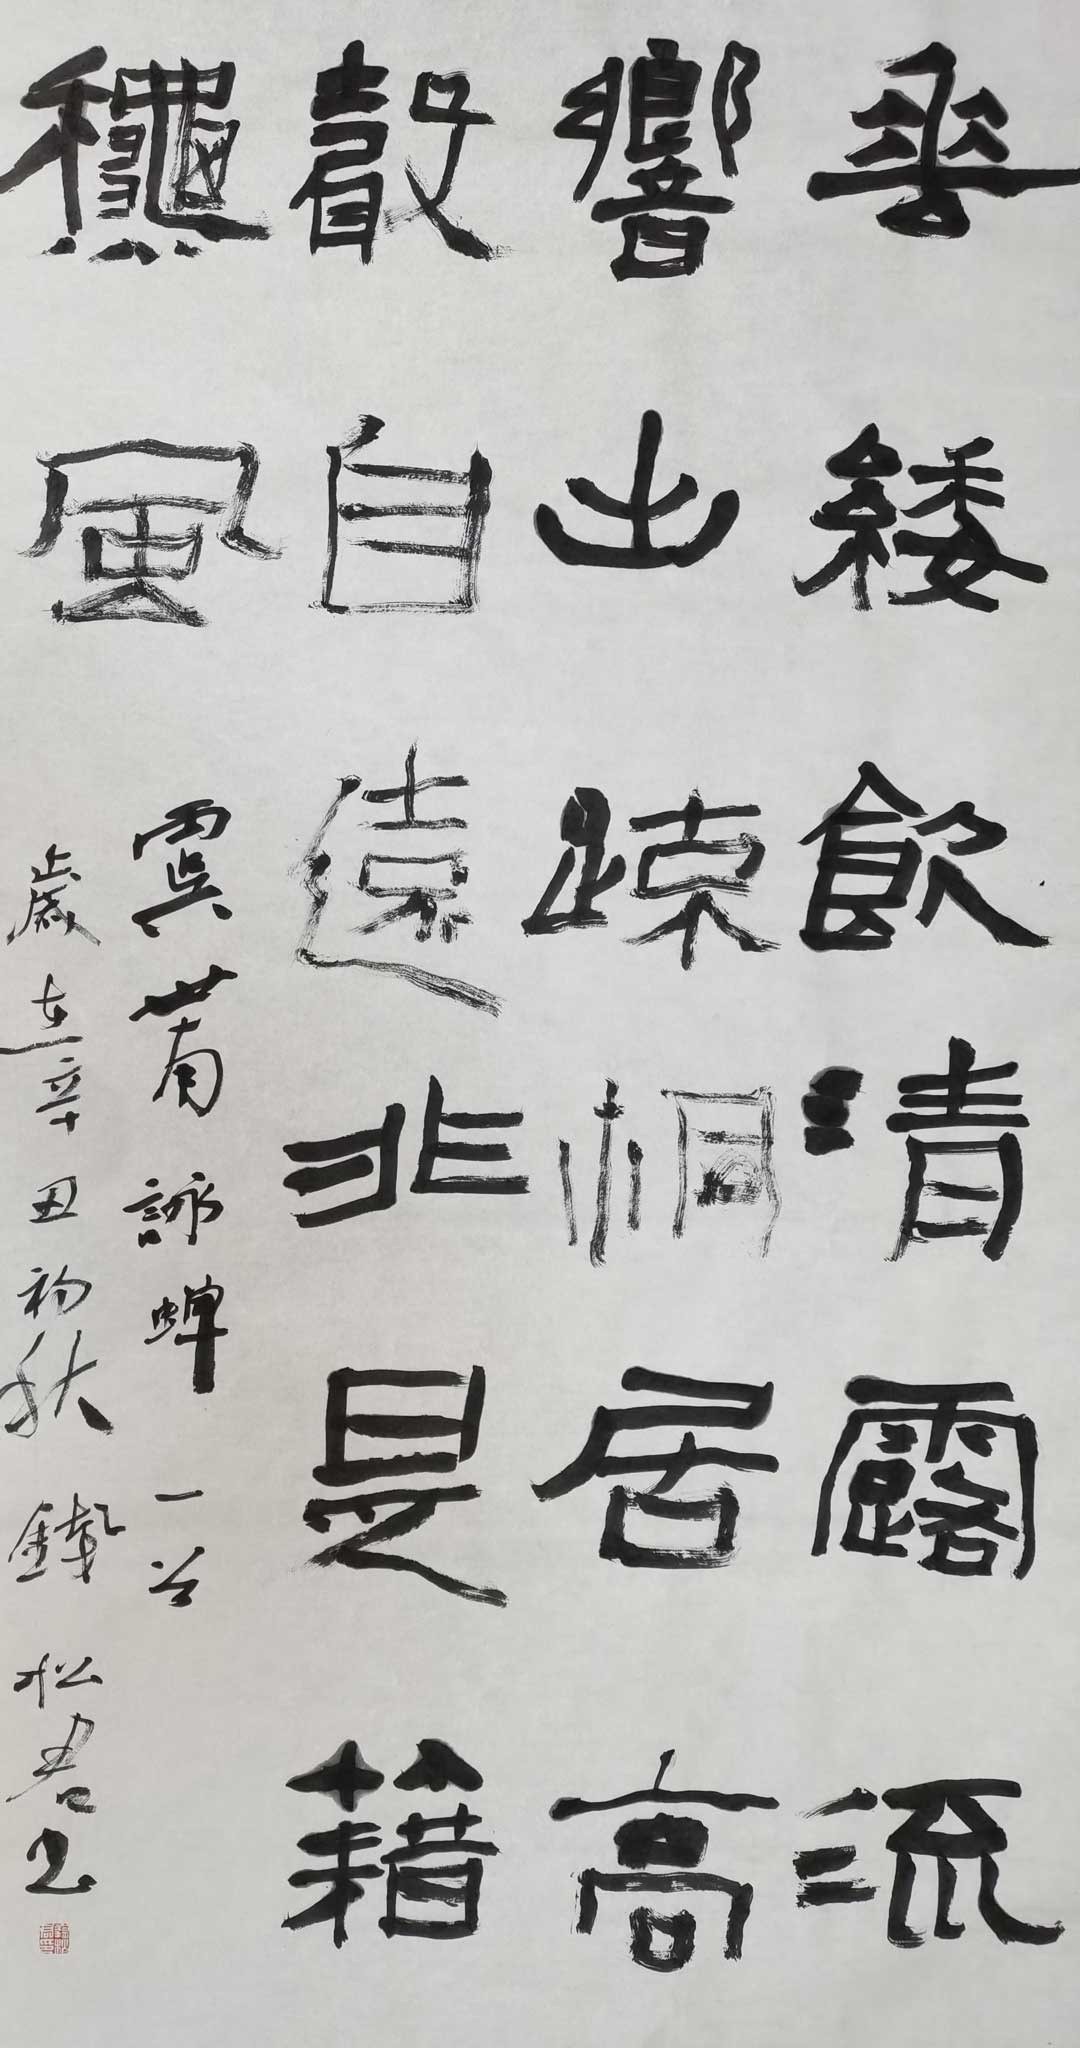 垂緌飲清露流
響出疎桐居高
聲自遠非是藉
穐風
虞世南詠蟬一首
歲在辛丑初秋錢松君書